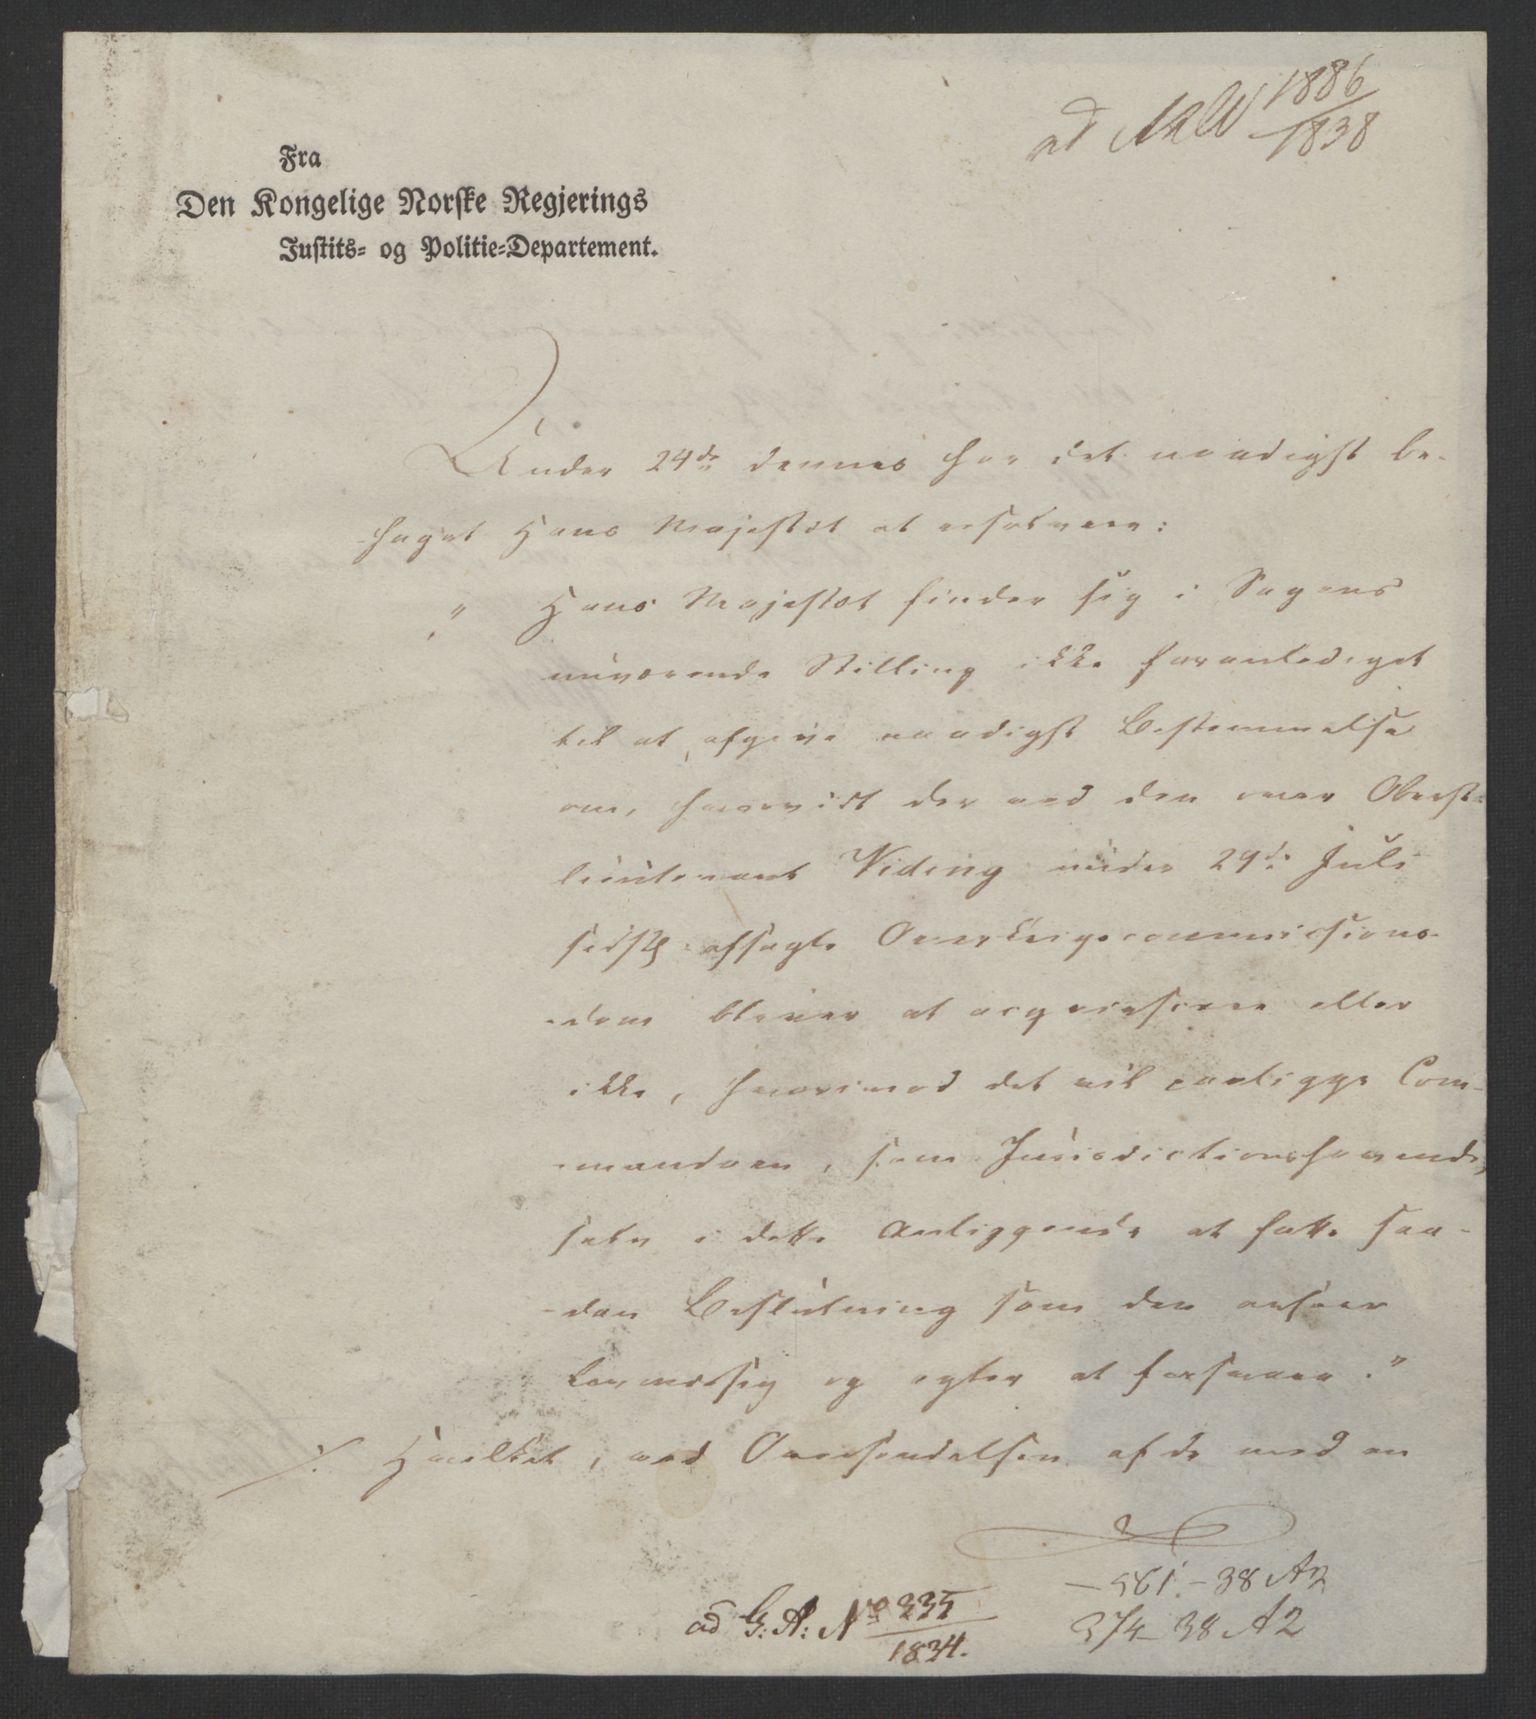 ad 1886
1838
Fra
Den Kongelige Norske Regjerings
Justits- og Politie-Departement.
Under 24de dennes har det naadigst be-
haget Hans Majestæt at resolvere:
"Hans Majestæt finder sig i Sagens
nuværende Stilling ikke foranlediget
til at afgive naadigst Bestemmelse
om, hvorvidt der ved den over Oberst-
lieutenant Viding under 29de Juli
sidstl. afsagte Overkrigscommissions-
dom bliver at acqviescere eller
ikke, hvorimod det vil paaligge Com-
mandoen, som Jurisdictionshavende,
selv i dette Anliggende at fatte saa-
dan Beslutning som den anseer
lovmæssig og agter at forsvare."
./. Hvilket, ved Oversendelsen af de med en
561 - 38 A2
374 - 38 A2
ad G: A: No 335
1834.